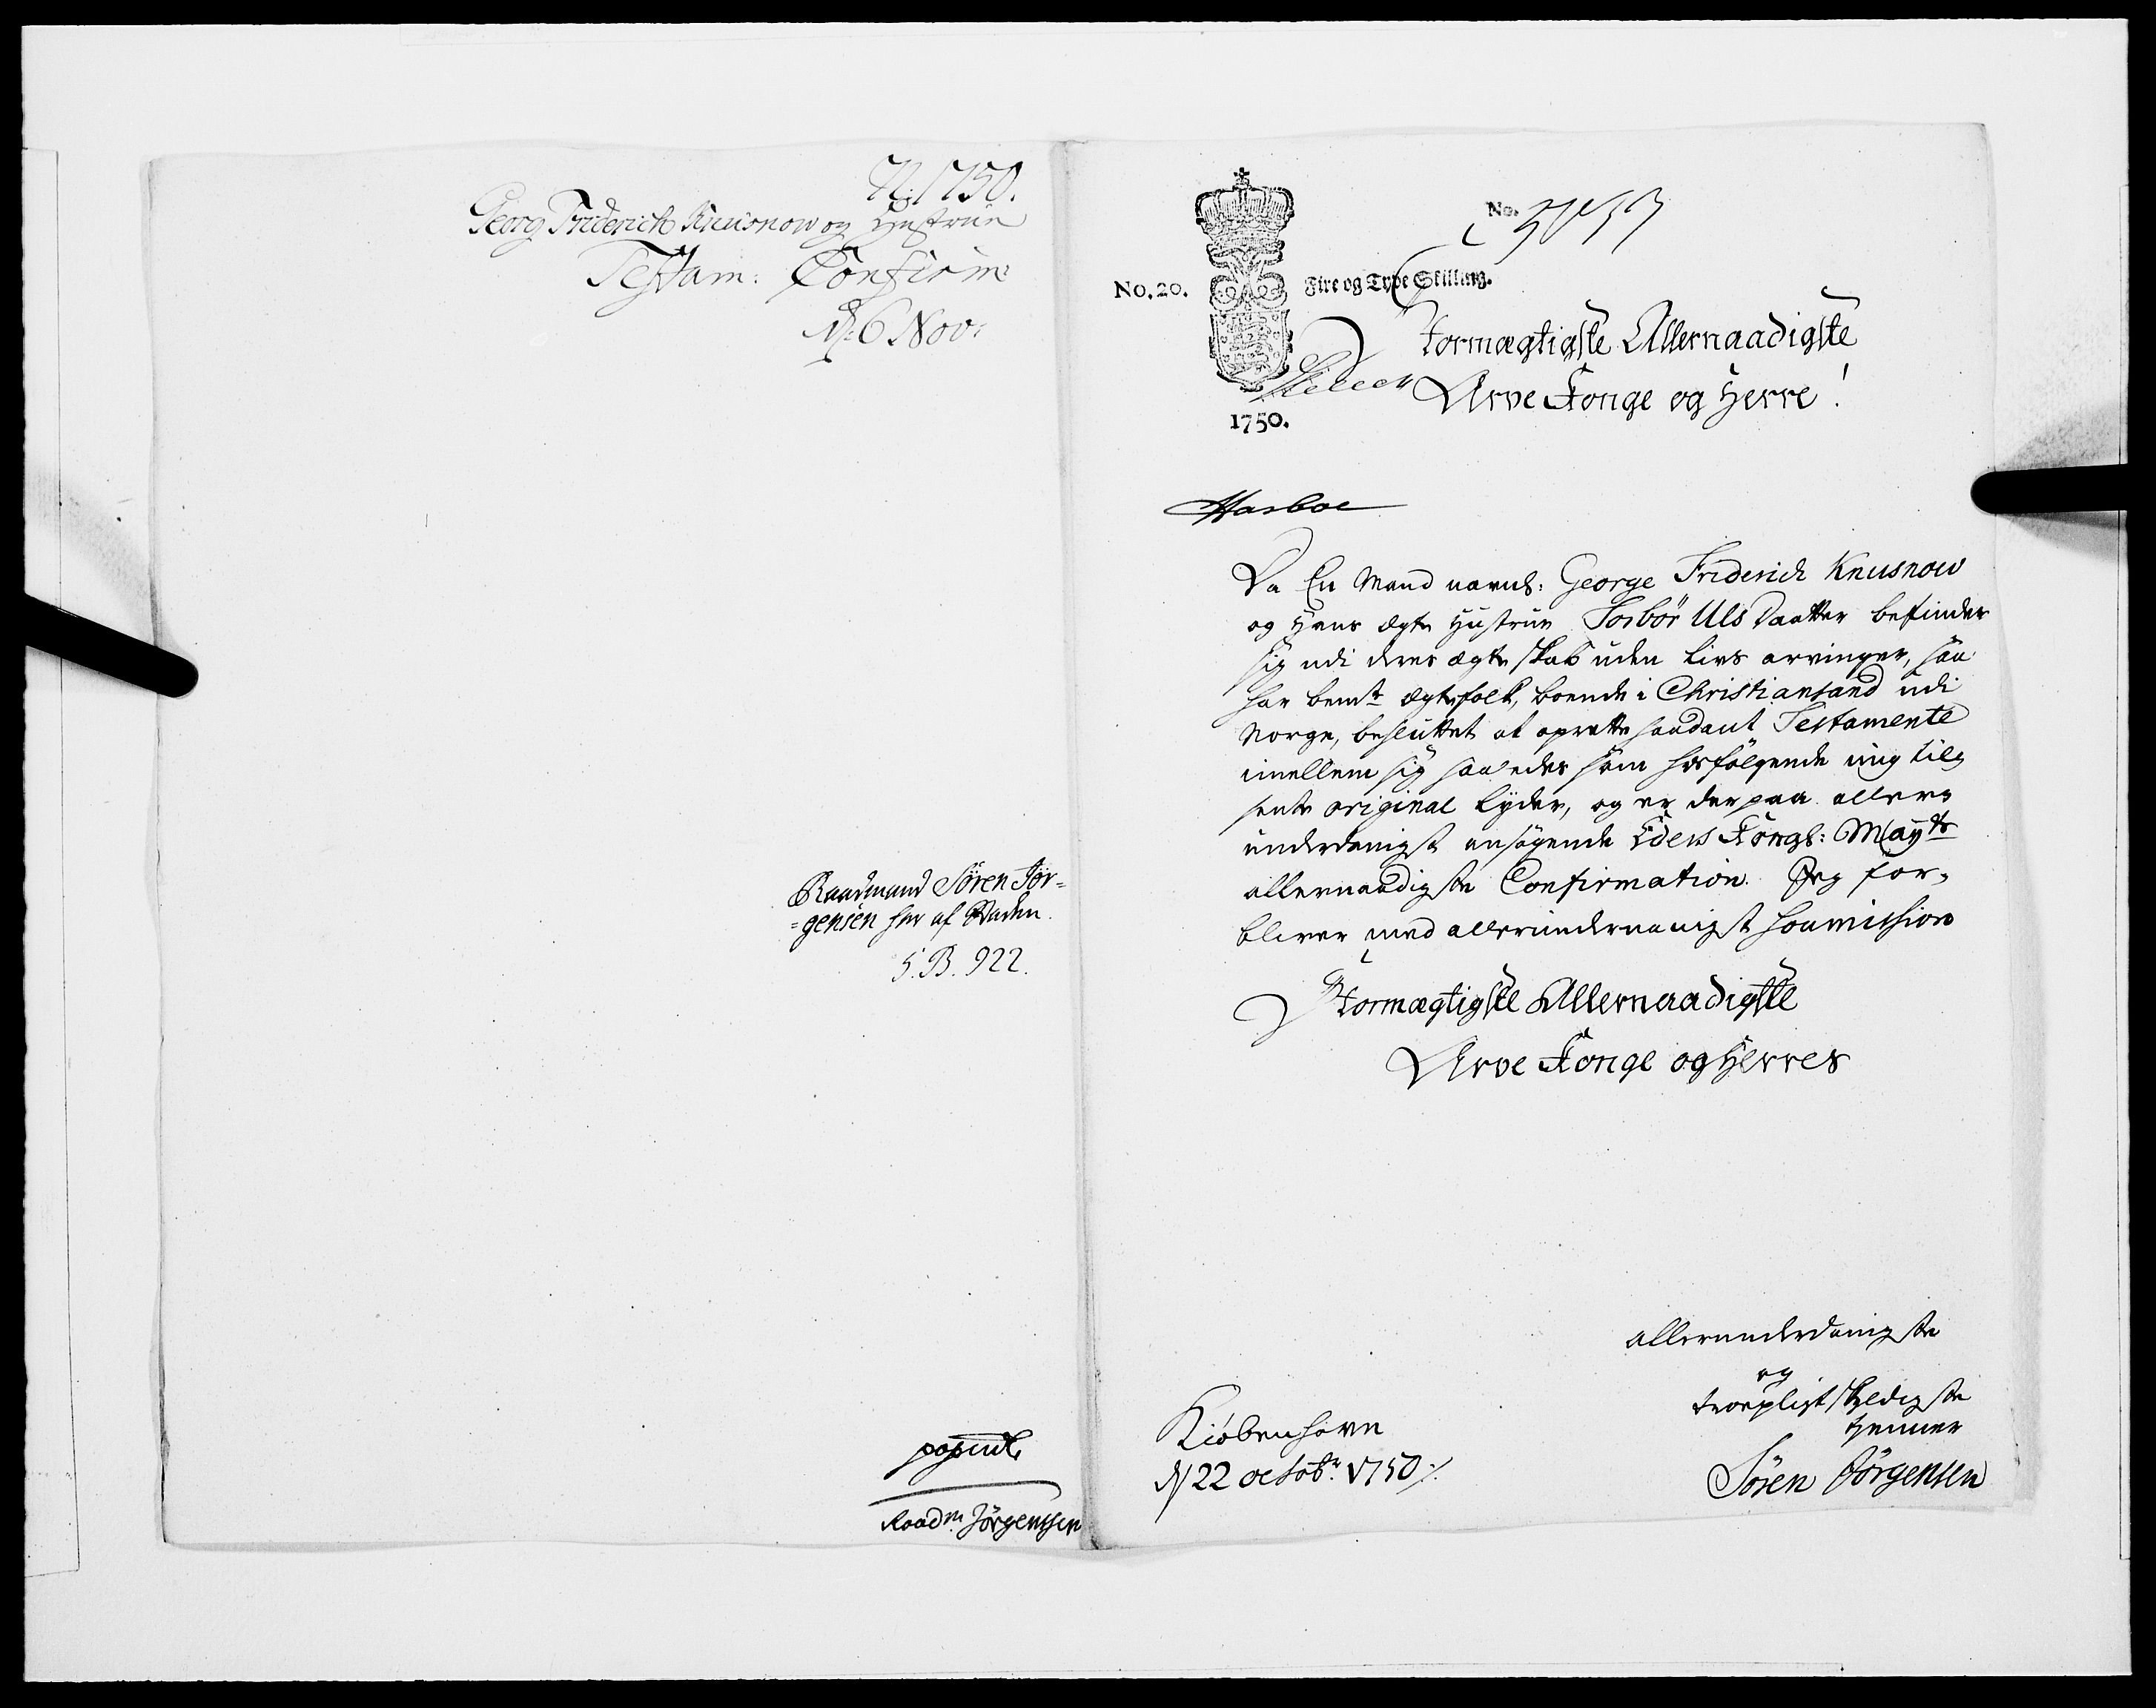 N: 1750.
Georg Friderich Knusnow og Hustrue
Testam: Confirm:
d: 6 Nov:
Raadmand Sören Jör=
=gensen her af Staden.
S. B. 922.
Raadm. Jörgensen
No.
No. 20.
Fire og Tyve Skilling.
1750.
Stormægtigste Allernaadigste
Arve Konge og Herre!
Harboe
Da En Mand navnl: George Friderich Knusnow
og Hans ægte Hustrue Torbör Uls Daatter befinder
sig udi deres ægteskab uden livs arvinger, saa
har bemte ægtefolk, boende i Christiansand udi
Norge, besluttet at oprette saadant Testamente
imellem sig saaledes som hosfölgende mig til,
sente original lyder, og er derpaa aller,
underdanigst ansögende Eders Kongl: Mayts
allernaadigste Confirmation. Jeg for,
bliver med allerunderdanigst soumission
Stormægtigste Allernaadigste
Arve Konge og Herres
allerunderdanigste
og
troepligtskyldigste
tienner
Sören Jörgensen
Kiöbenhavn
d 22 octobr: 1750 ./.